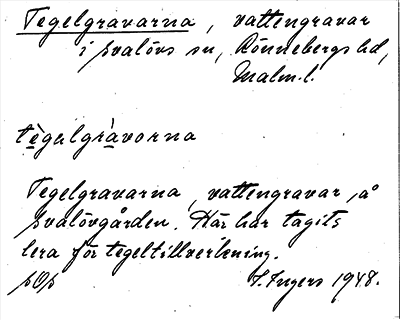 Tegelgravarna, vattengravar
i Svalövs sn, Rönnebergs hd,
Malm.l.
tègulgràvorna
Tegelgravarna, vattengravar, å
Svalövgården. Här har tagits
lera för tegeltillverkning.
pOp I. Ingers 1948.